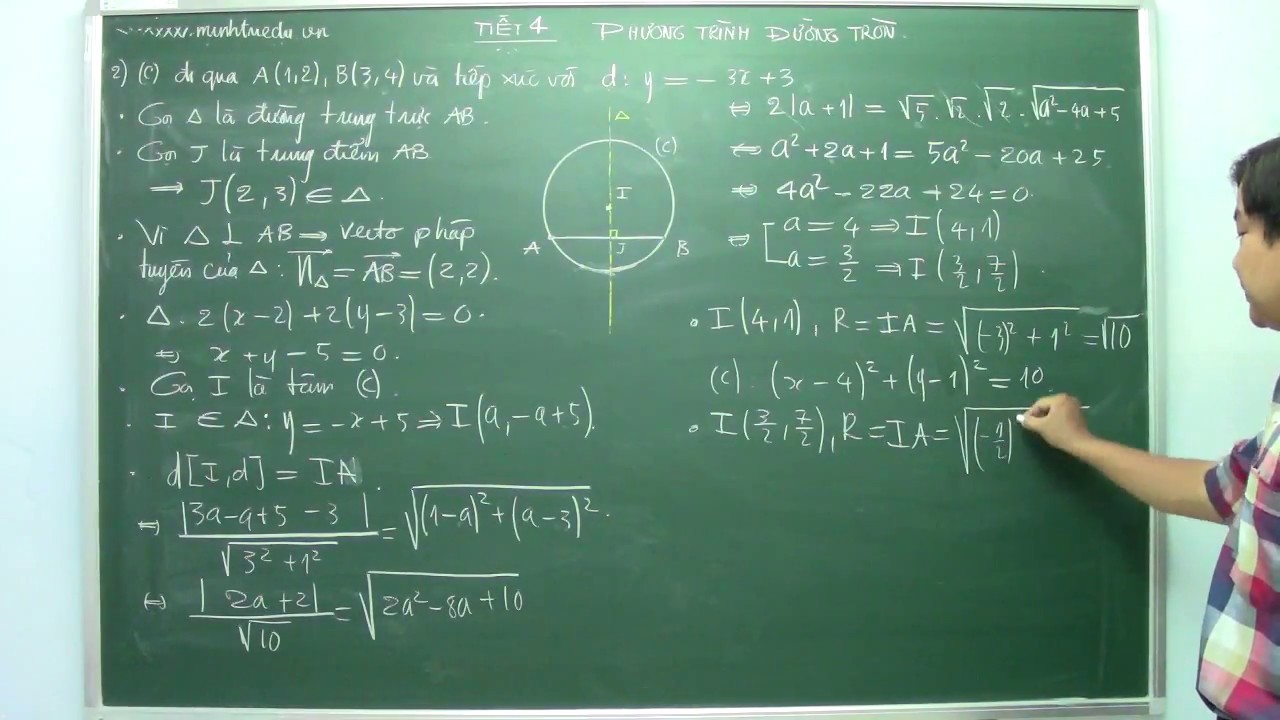 www.minhtuedu.vn
TIẾT 4 PHƯƠNG TRÌNH ĐƯỜNG TRÒN.
2) (C) đi qua A(1,2), B(3,4) và tiếp xúc với d: y = - 3x + 3
• Gọi Δ là đường trung trực AB.
• Gọi J là trung điểm AB
⇒ J(2,3) ∈ Δ.
• Vì Δ ⊥ AB ⇒ vectơ pháp
tuyến của Δ: n⃗_Δ = AB⃗ = (2,2).
• Δ. 2(x-2)+2(y-3)=0.
⇔ x+y-5=0.
• Gọi I là tâm (C).
• I ∈ Δ: y = -x+5 ⇒ I(a,-a+5).
• d[I,d] = IA.
⇔ |3a-a+5-3| / √(3²+1²) = √((1-a)²+(a-3)²).
⇔ |2a+2| / √10 = √(2a²-8a+10)
Δ
(C)
I
A J B
⇔ 2|a+1| = √5.√2.√2.√(a²-4a+5)
⇔ a²+2a+1 = 5a²-20a+25
⇔ 4a²-22a+24=0.
⇔ [ a=4 ⇒ I(4,1)
a=3/2 ⇒ I(3/2,7/2).
• I(4,1), R=IA=√((-3)²+1²)=√10
(C). (x-4)²+(y-1)²=10
• I(3/2,7/2), R=IA=√((-1/2)